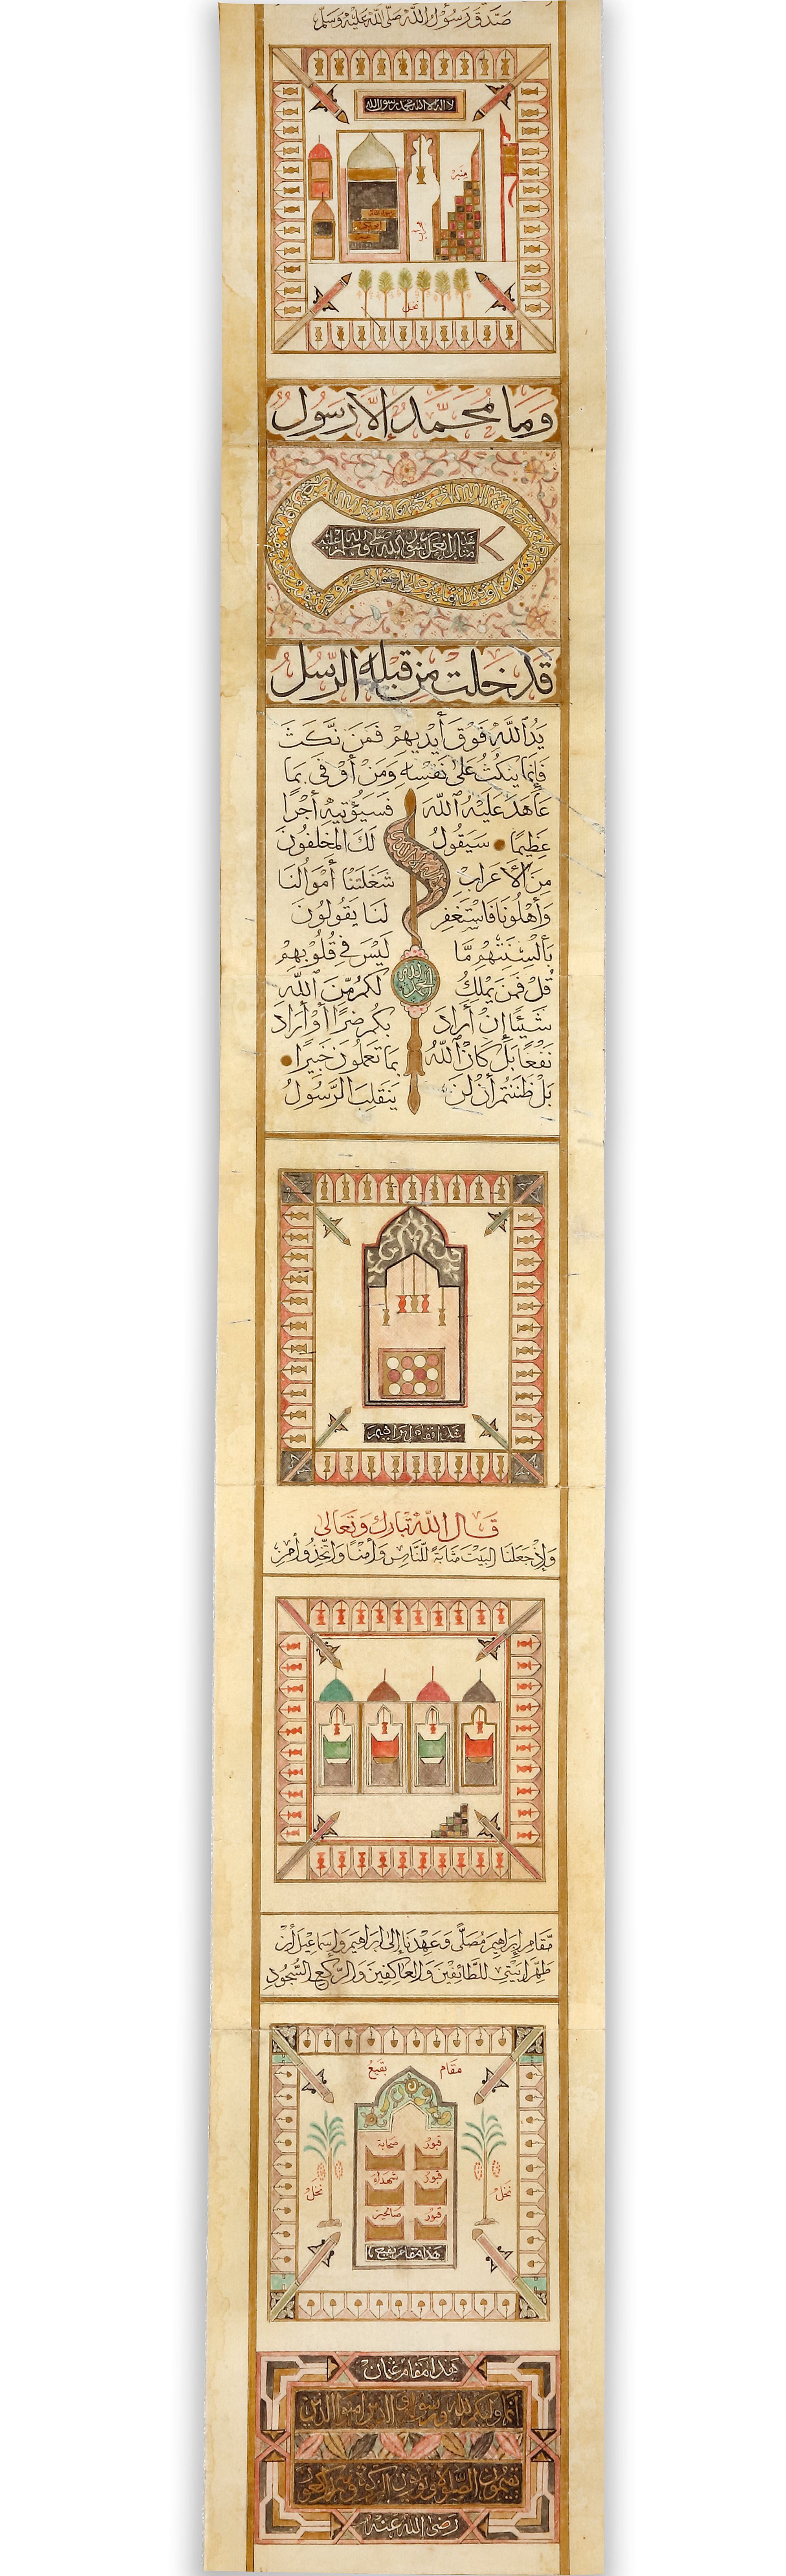 صَدَقَ رَسُوْلُ اللّٰهِ صَلَّى اللّٰهُ عَلَيْهِ وَسَلَّمَ
لا اله الا الله محمد رسول الله
منبر
محراب
نخل
وَمَا مُحَمَّدٌ اِلَّا رَسُولٌ
قَدْ خَلَتْ مِنْ قَبْلِهِ الرُّسُلُ
يَدُ ٱللَّهِ فَوْقَ أَيْدِيهِمْ فَمَن نَّكَثَ
فَإِنَّمَا يَنكُثُ عَلَىٰ نَفْسِهِ وَمَنْ أَوْفَىٰ بِمَا
عَاهَدَ عَلَيْهُ ٱللَّهَ فَسَيُؤْتِيهِ أَجْرًا
عَظِيمًا سَيَقُولُ لَكَ الْمُخَلَّفُونَ
مِنَ الْأَعْرَابِ شَغَلَتْنَا أَمْوَالُنَا
وَأَهْلُونَا فَاسْتَغْفِر لَنَا يَقُولُونَ
بِأَلْسِنَتِهِم مَّا لَيْسَ فِي قُلُوبِهِمْ
قُلْ فَمَن يَمْلِكُ لَكُم مِّنَ ٱللَّهِ
شَيْئًا إِنْ أَرَادَ بِكُمْ ضَرًّا أَوْ أَرَادَ
نَفْعًا بَلْ كَانَ ٱللَّهُ بِمَا تَعْمَلُونَ خَبِيرًا
بَلْ ظَنَنتُمْ أَن لَّن يَنقَلِبَ الرَّسُولُ
هذا مقام ابراهيم
قَالَ اللّٰهُ تَبَارَكَ وَتَعَالَى
وَإِذْ جَعَلْنَا الْبَيْتَ مَثَابَةً لِّلنَّاسِ وَأَمْنًا وَاتَّخِذُوا مِن
مَّقَامِ إِبْرَاهِيمَ مُصَلًّى وَعَهِدْنَا إِلَى إِبْرَاهِيمَ وَإِسْمَاعِيلَ أَن
طَهِّرَا بَيْتِيَ لِلطَّائِفِينَ وَالْعَاكِفِينَ وَالرُّكَّعِ السُّجُودِ
مقام بقيع
قبور صحابة
قبور شهداء
قبور صالحين
نخل نخل
هذا مقام بقيع
هذا مقام عثمان
انما وليكم الله ورسوله والذين امنوا الذين
يقيمون الصلوة ويؤتون الزكوة وهم راكعون
رضى الله عنه